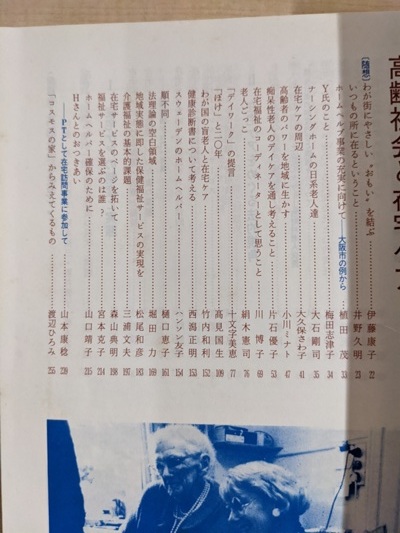 高齢社会と在宅ケア
〔随想〕
わが街にやさしい〝おもい〟を結ぶ……伊藤康子 22
いつもの所に在るということ……井野久明 23
ホームヘルプ事業の充実に向けて——大阪市の例から……植田 茂 33
Y氏のこと……梅田志津子 34
ナーシングホームの日系老人達……大石剛司 35
在宅ケアの周辺……大久保さわ子 41
高齢者のパワーを地域に生かす……小川ミナト 47
痴呆性老人のデイケアを通し考えること……片石優子 53
在宅福祉のコーディネーターとして思うこと……川 博子 69
老人ごっこ……絹木憲司 76
「デイワーク」の提言……十文字美恵 77
「ぼけ」と二〇年……高見国生 109
わが国の盲老人と在宅ケア……竹内和利 152
健康診断書について考える……西潟正明 153
スウェーデンのホームヘルパー……ハンソン友子 154
順不同……樋口恵子 161
法理論の空白領域……堀田 力 169
地域実態に即した保健福祉サービスの実現を……松尾和彦 183
介護福祉の基本的課題……三浦文夫 197
在宅サービスのページを拓いて……森山典明 198
福祉サービスを選ぶのは誰?……宮本克子 234
ホームヘルパー確保のために……山口靖子 235
Hさんとのおつきあい
——PTとして在宅訪問事業に参加して……山本康稔 239
「コスモスの家」からみえてくるもの……渡辺ひろみ 255